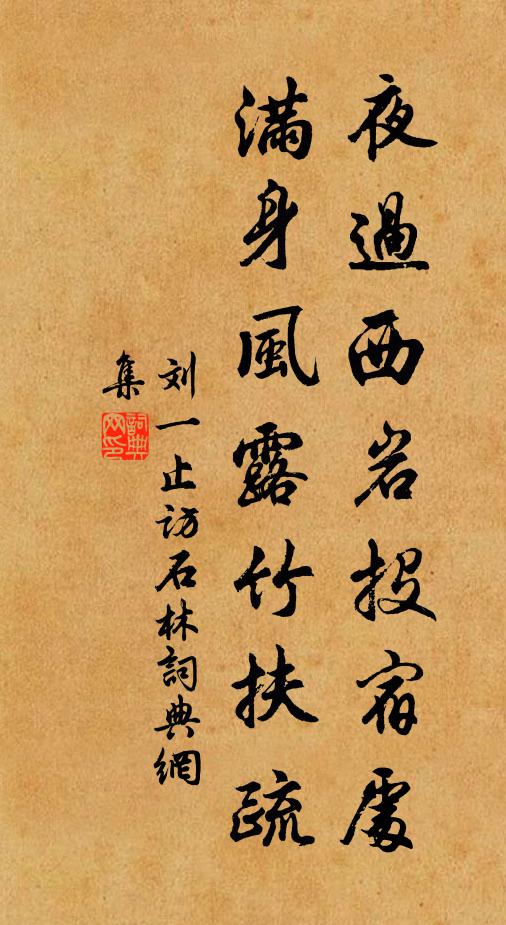 夜過西岩投宿處
滿身風露竹扶疏
刘一止访石林詞典網
集
詞典網印